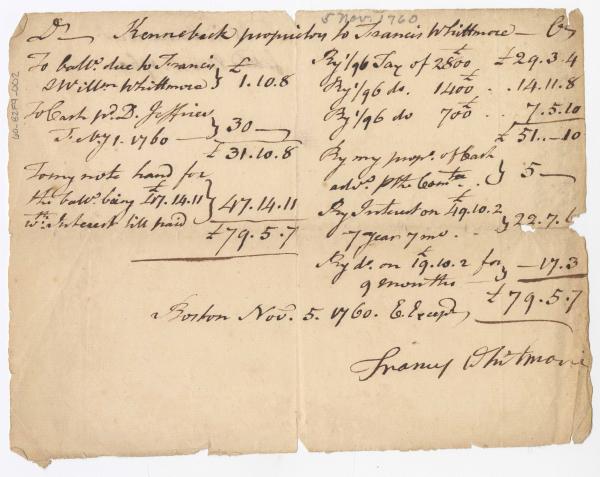 5 Nov. 1760
Dr Kennebeck proprietors to Francis Whittmore — Cr
To ballce. due to Francis
& Willm Whittmore } £ 1.10.8
To Cash pd. D. Jeffries
Feby 1. 1760 — } 30 —
£31.10.8
To my note hand for
the ballce. being £47.14.11
wth. Interest till paid } 47.14.11
£79.5.7
By 1/96 Tax of 2800£ £29.3.4
By 1/96 do. 1400£ . . 14.11.8
By 1/96 do 700£ . . 7.5.10
£51.—10
By my propn. of Cash
advd. pr the Comtee . . } 5 —
By Interest on £49.10.2
7 year 7 mo . . } 22.7.6
By do. on £19.10.2 for
9 months — } —17.3
£79.5.7
Boston Novr. 5. 1760. E. Except
Francis Whitmore
60-82F9-002